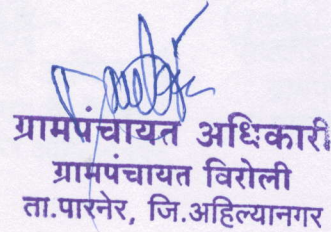 ग्रामपंचायत अधिकारी
ग्रामपंचायत विरोली
ता.पारनेर, जि.अहिल्यानगर